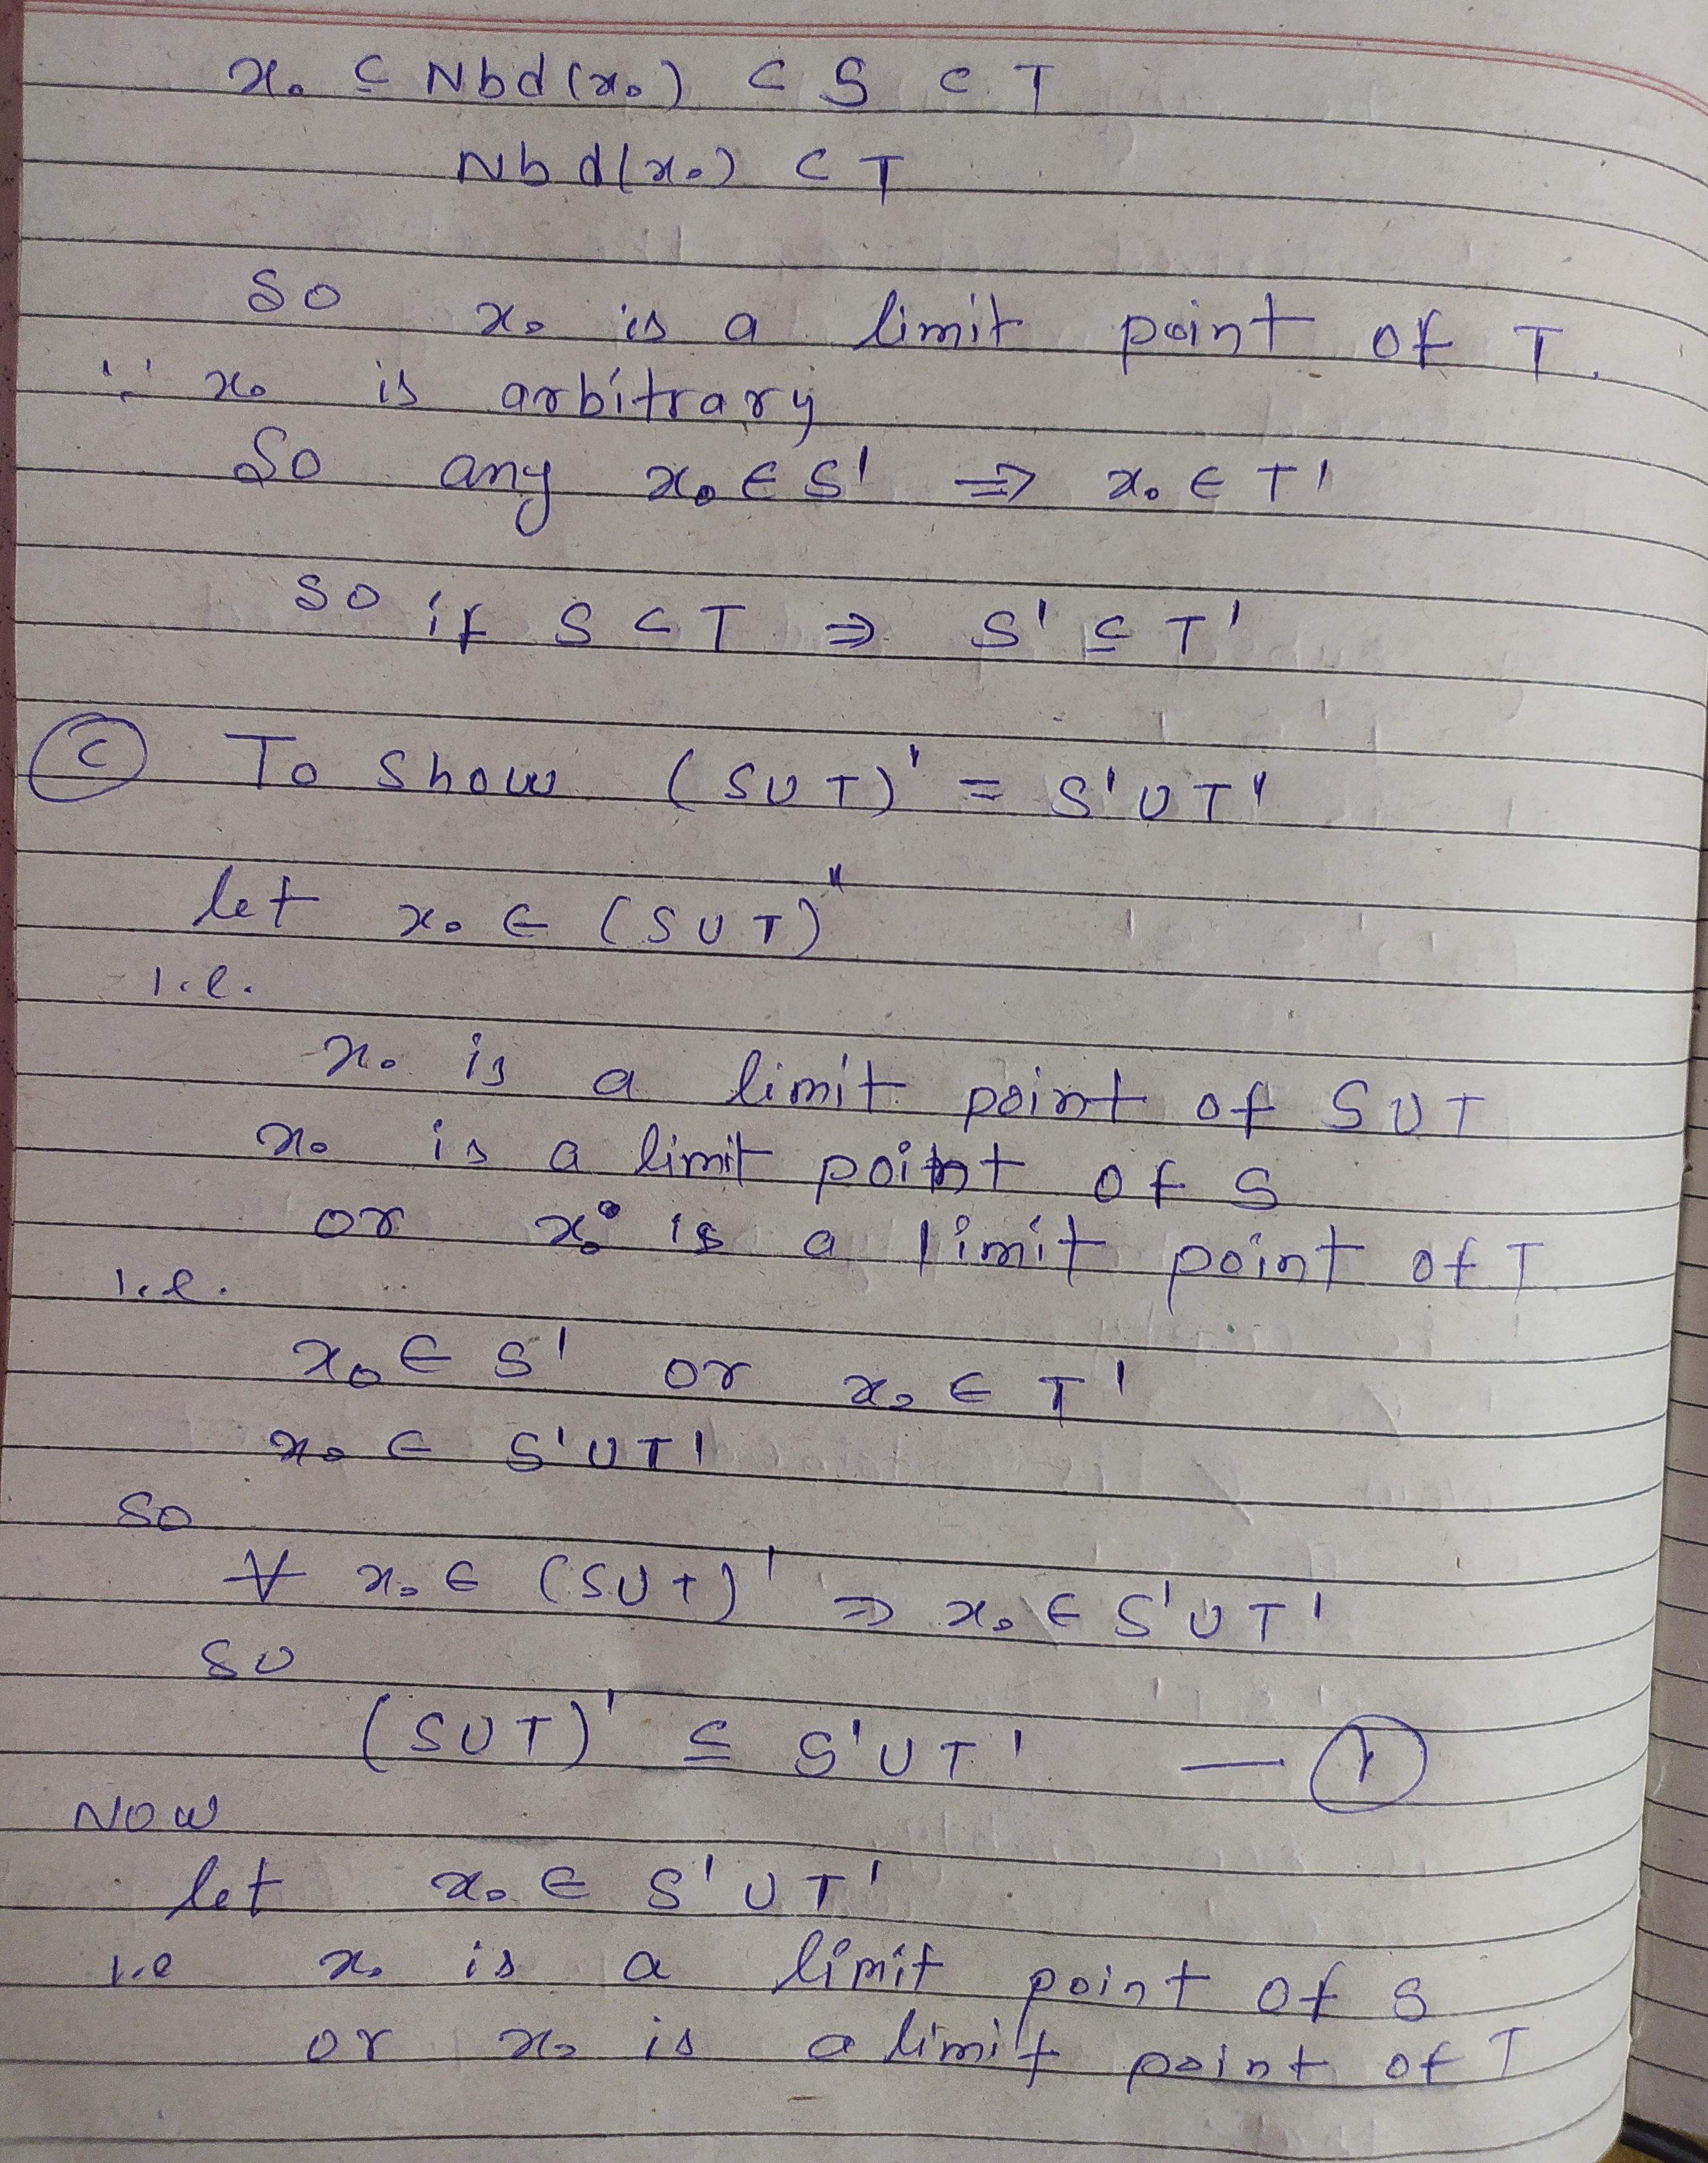 x₀ ⊆ Nbd(x₀) ⊂ S ⊂ T
Nbd(x₀) ⊂ T
So x₀ is a limit point of T.
∵ x₀ is arbitrary
So any x₀ ∈ S' ⇒ x₀ ∈ T'
So if S ⊂ T ⇒ S' ⊆ T'
(c) To Show (S∪T)' = S'∪T'
let x₀ ∈ (S∪T)'
i.e.
x₀ is a limit point of S∪T
x₀ is a limit point of S
or x₀ is a limit point of T
i.e.
x₀ ∈ S' or x₀ ∈ T'
x₀ ∈ S'∪T'
So
∀ x₀ ∈ (S∪T)' ⇒ x₀ ∈ S'∪T'
So
(S∪T)' ⊆ S'∪T' — (1)
Now
let x₀ ∈ S'∪T'
i.e x₀ is a limit point of S
or x₀ is a limit point of T